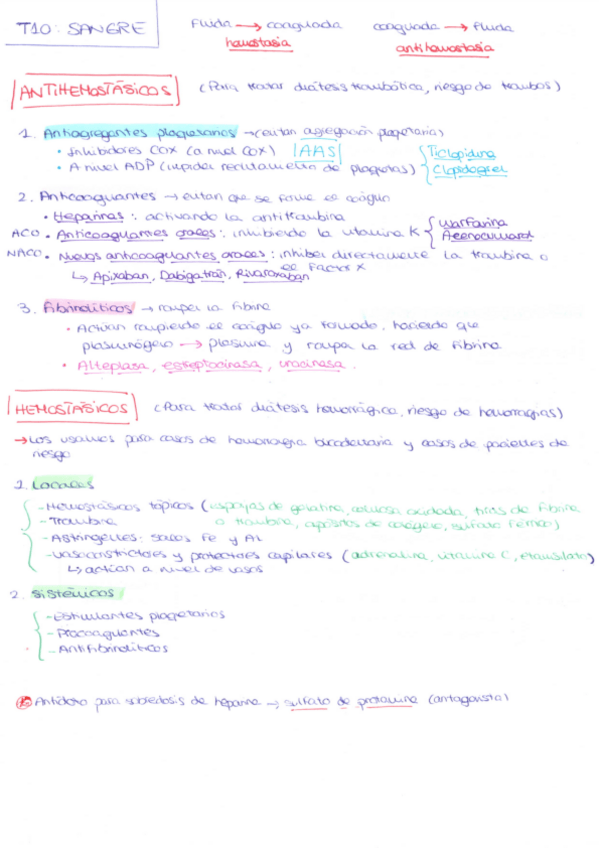 T10: SANGRE
Fluida → coagulada
hemostasia
coagulada → Fluida
antihemostasia
ANTIHEMOSTÁSICOS (Para tratar diátesis trombótica, riesgo de trombos)
1. Antiagregantes plaquetarios → (evitan agregación plaquetaria)
• Inhibidores COX (a nivel COX) AAS
• A nivel ADP (impiden reclutamiento de plaquetas) Ticlopidina
Clopidogrel
2. Anticoagulantes → evitan que se forme el coágulo
• Heparinas: activando la antitrombina
ACO • Anticoagulantes orales: inhibiendo la vitamina K Warfarina
Acenocumarol
NACO • Nuevos anticoagulantes orales: inhiben directamente la trombina o
el Factor X
↳ Apixaban, Dabigatrán, Rivaroxaban
3. Fibrinolíticos → rompen la fibrina
• Actúan rompiendo el coágulo ya formado, haciendo que
plasminógeno → plasmina y rompa la red de fibrina
• Alteplasa, estreptocinasa, urocinasa.
HEMOSTÁSICOS (Para tratar diátesis hemorrágica, riesgo de hemorragias)
→ Los usamos para casos de hemorragia bucodentaria y casos de pacientes de
riesgo
1. Locales
- Hemostásicos tópicos (esponjas de gelatina, celulosa oxidada, tiras de fibrina
o trombina, apósitos de colágeno, sulfato férrico)
- Trombina
- Astringentes: sales Fe y Al
- Vasoconstrictores y protectores capilares (adrenalina, vitamina C, etamsilato)
↳ actúan a nivel de vasos
2. Sistémicos
- Estimulantes plaquetarios
- Procoagulantes
- Antifibrinolíticos
Antídoto para sobredosis de heparina → sulfato de protamina (antagonista)